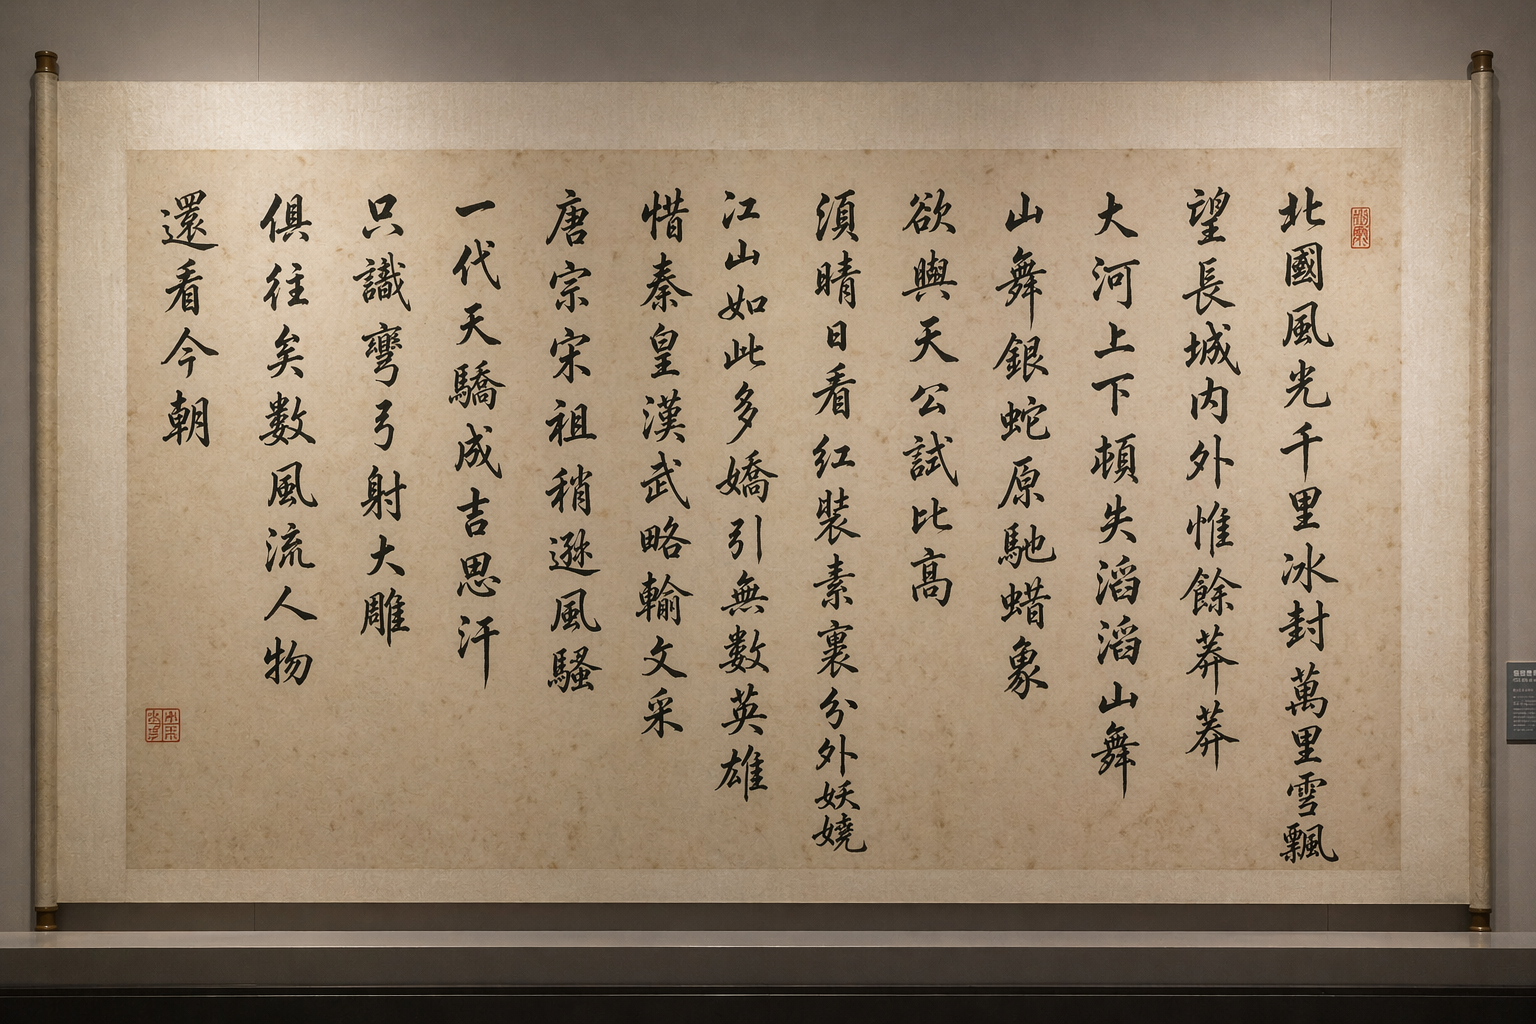 北國風光千里冰封萬里雪飄
望長城内外惟餘莽莽
大河上下頓失滔滔山舞
山舞銀蛇原馳蜡象
欲與天公試比高
須晴日看紅裝素裏分外妖嬈
江山如此多嬌引無數英雄
惜秦皇漢武略輸文采
唐宗宋祖稍遜風騷
一代天驕成吉思汗
只識彎弓射大雕
俱往矣數風流人物
還看今朝